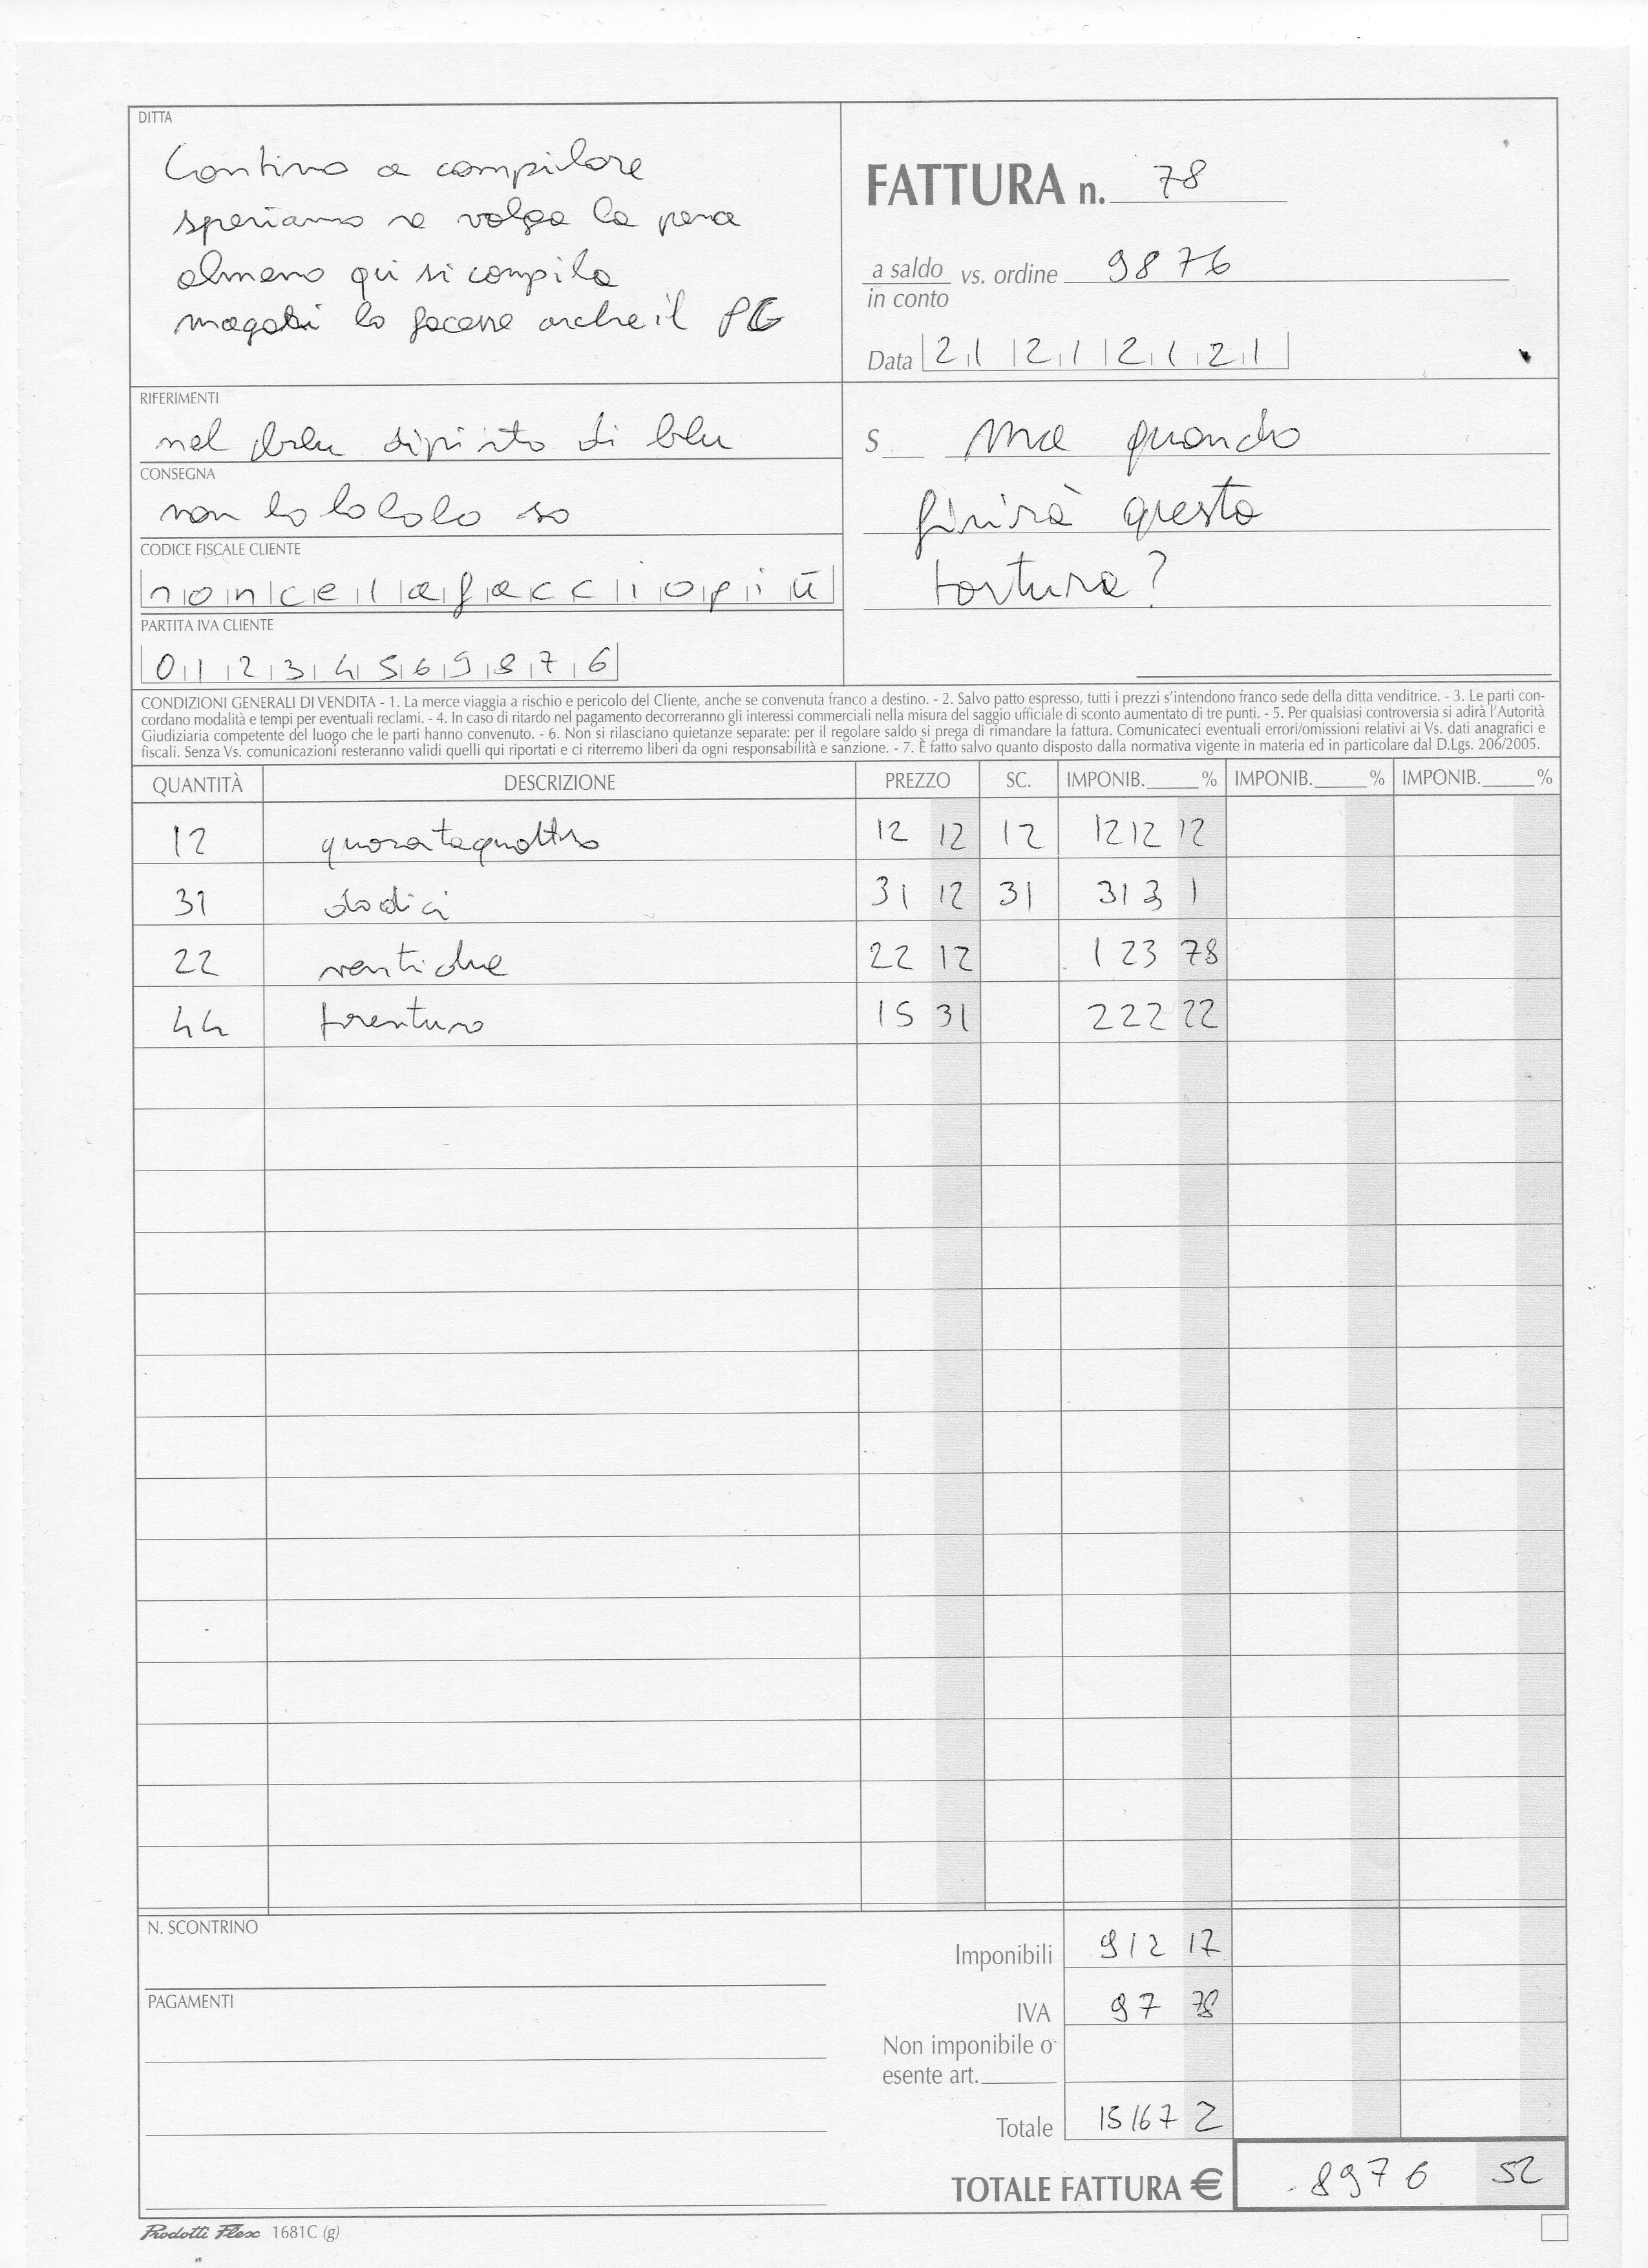 DITTA
Continuo a compilare
speriamo ne valga la pena
almeno qui si compila
magari lo facesse anche il PC
FATTURA n. 78
a saldo vs. ordine 9876
in conto
Data 21 21 21 21
RIFERIMENTI
nel blu dipinto di blu
CONSEGNA
non lo lo lo lo so
CODICE FISCALE CLIENTE
noncelafacciopiù
PARTITA IVA CLIENTE
01234569876
S ma quando
finirà questa
tortura?
CONDIZIONI GENERALI DI VENDITA - 1. La merce viaggia a rischio e pericolo del Cliente, anche se convenuta franco a destino. - 2. Salvo patto espresso, tutti i prezzi s'intendono franco sede della ditta venditrice. - 3. Le parti con-
cordano modalità e tempi per eventuali reclami. - 4. In caso di ritardo nel pagamento decorreranno gli interessi commerciali nella misura del saggio ufficiale di sconto aumentato di tre punti. - 5. Per qualsiasi controversia si adirà l'Autorità
Giudiziaria competente del luogo che le parti hanno convenuto. - 6. Non si rilasciano quietanze separate: per il regolare saldo si prega di rimandare la fattura. Comunicateci eventuali errori/omissioni relativi ai Vs. dati anagrafici e
fiscali. Senza Vs. comunicazioni resteranno validi quelli qui riportati e ci riterremo liberi da ogni responsabilità e sanzione. - 7. È fatto salvo quanto disposto dalla normativa vigente in materia ed in particolare dal D.Lgs. 206/2005.
QUANTITÀ DESCRIZIONE PREZZO SC. IMPONIB. % IMPONIB. % IMPONIB. %
12 quarantaquattro 12 12 12 1212 12
31 dodici 31 12 31 313 1
22 ventidue 22 12 123 78
44 trentuno 15 31 222 22
N. SCONTRINO
Imponibili 912 12
PAGAMENTI
IVA 97 78
Non imponibile o
esente art.
Totale 15167 2
TOTALE FATTURA € 8976 52
Prodotti Flex 1681C (g)